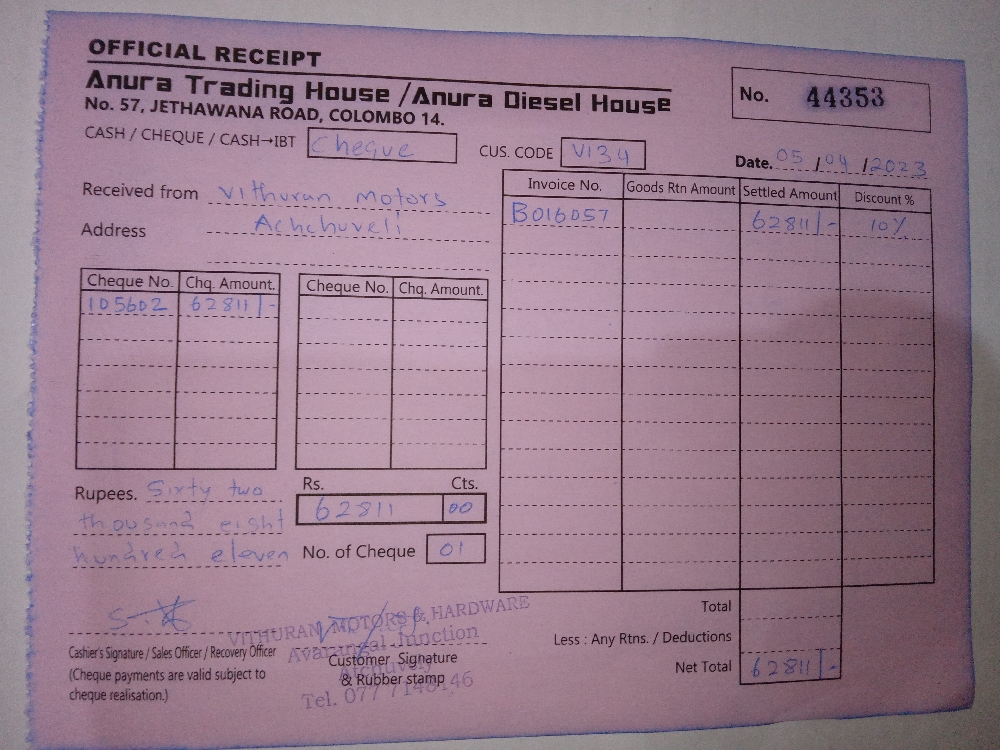 OFFICIAL RECEIPT
Anura Trading House /Anura Diesel House
No. 57, JETHAWANA ROAD, COLOMBO 14.
No. 44353
CASH / CHEQUE / CASH→IBT Cheque
CUS. CODE V134
Date. 05 /04 /2023
Received from Vithuran Motors
Address Achchuveli
Invoice No. Goods Rtn Amount Settled Amount Discount %
B016057 62811/- 10%
Cheque No. Chq. Amount. Cheque No. Chq. Amount.
105602 62811/-
Rupees. Sixty two
thousand eight
hundred eleven
Rs. Cts.
62811 00
No. of Cheque 01
Total
Less : Any Rtns. / Deductions
Net Total 62811/-
Cashier's Signature / Sales Officer / Recovery Officer
(Cheque payments are valid subject to
cheque realisation.)
VITHURAN MOTORS & HARDWARE
Avarangal Junction
Atchuvely
Tel. 077
Customer Signature
& Rubber stamp